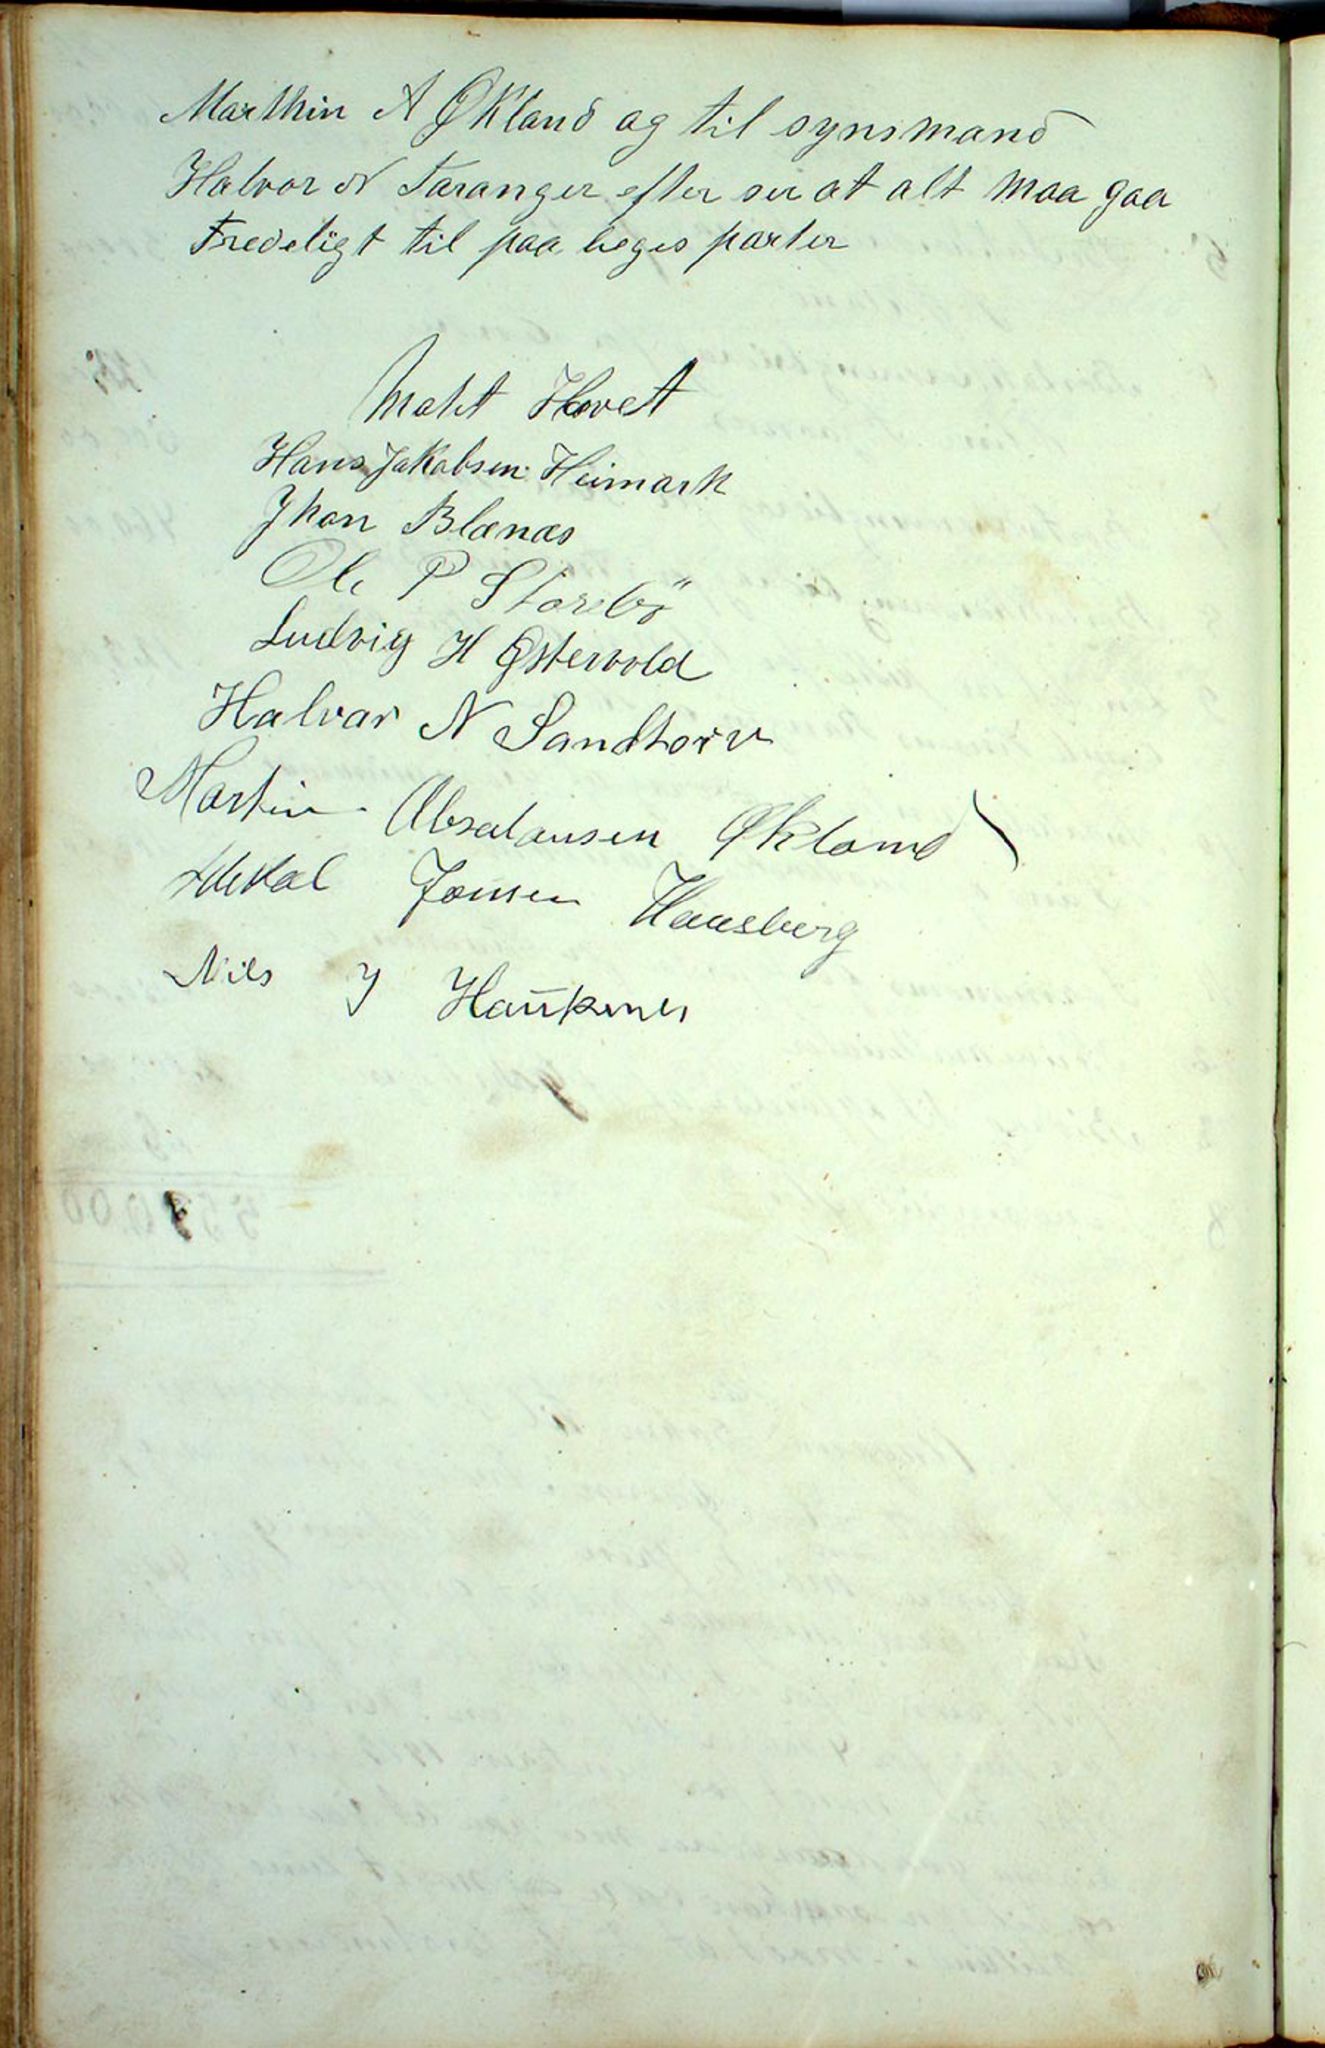 Marthin A Økland og til synsmand
Halvor N Taranger efter ser at alt maa gaa
Fredeligt til paa beges parter
Hans Jakobsen Heimark
Jhon Blænæs
Ole P Storebö
Ludvig H Østervold
Halvar N Sandtorv
Martin Absalonsen Økland
Jonsen Haasberg
Nils J